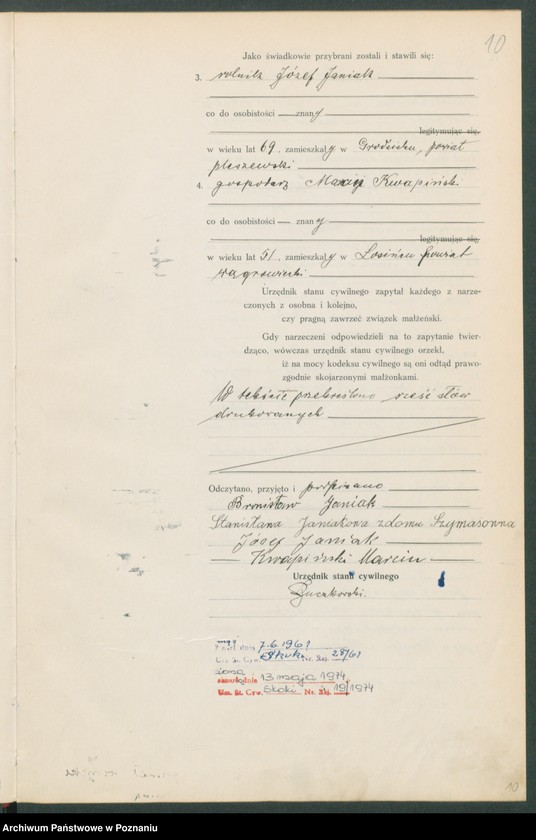 10
Jako świadkowie przybrani zostali i stawili się:
3. rolnik Józef Janiak
co do osobistości znany
legitymując się,
w wieku lat 69, zamieszkały w Grodzisku, powiat
pleszewski
4. gospodarz Marcin Kwapiński
co do osobistości znany
legitymując się,
w wieku lat 51, zamieszkały w Łosińcu powiat
wągrowiecki
Urzędnik stanu cywilnego zapytał każdego z narze-
czonych z osobna i kolejno,
czy pragną zawrzeć związek małżeński.
Gdy narzeczeni odpowiedzieli na to zapytanie twier-
dząco, wówczas urzędnik stanu cywilnego orzekł,
iż na mocy kodeksu cywilnego są oni odtąd prawo-
zgodnie skojarzonymi małżonkami.
W tekście przekreślono sześć słów
drukowanych
Odczytano, przyjęto i podpisano
Bronisław Janiak
Stanisława Janiakowa z domu Szymasówna
Józef Janiak
Kwapiński Marcin
Urzędnik stanu cywilnego
dnia 7.6.1961
Urz. St. Cyw. Nr. Rej. 28/61
13 maja 1974
Urz. St. Cyw. Skoki Nr. Rej. 19/1974
10
Archiwum Państwowe w Poznaniu